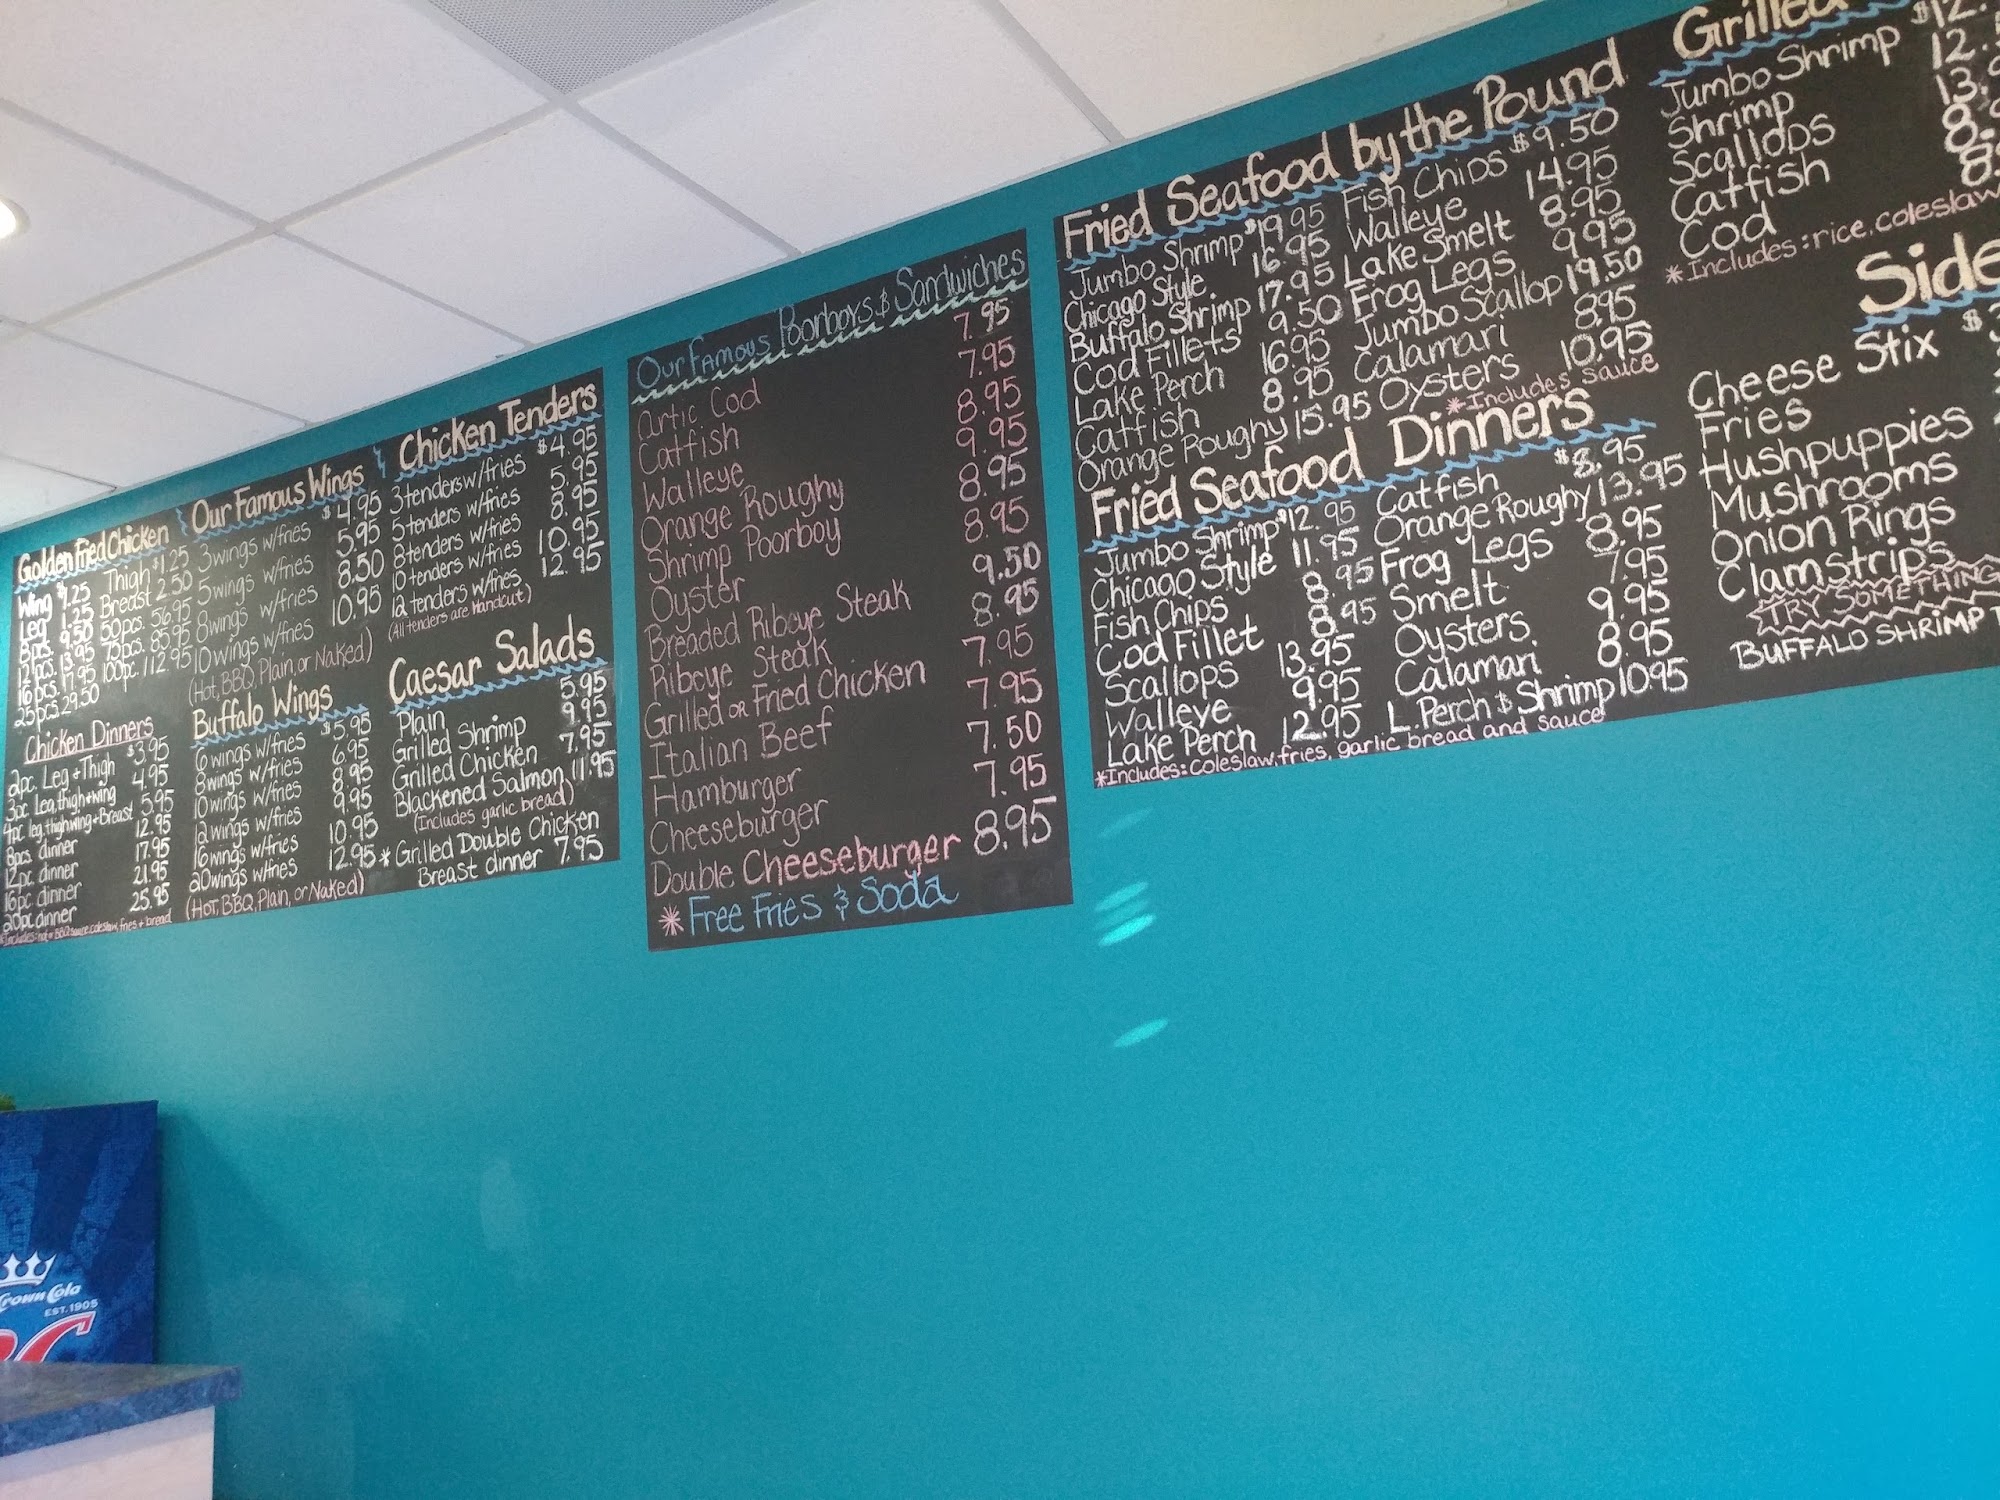 Golden Fried Chicken
Wing $1.25 Thigh $1.25
Leg 1.25 Breast 2.50
8pcs. 9.50 50pcs. 56.95
12pcs. 13.95 75pcs. 85.95
16pcs. 17.95 100pc. 112.95
25pcs. 29.50
Chicken Dinners
2pc. Leg + Thigh $3.95
3pc Leg, thigh + wing 4.95
4pc leg, thigh, wing + Breast 5.95
8pcs. dinner 12.95
12pc. dinner 17.95
16pc dinner 21.95
20pc dinner 25.95
*Includes: hot or BBQ sauce, coleslaw, fries + bread
Our Famous Wings
3 wings w/fries $4.95
5 wings w/fries 5.95
8 wings w/fries 8.50
10 wings w/fries 10.95
(Hot, BBQ, Plain, or Naked)
Buffalo Wings
6 wings w/fries $5.95
8 wings w/fries 6.95
10 wings w/fries 8.95
12 wings w/fries 9.95
16 wings w/fries 10.95
20 wings w/fries 12.95
(Hot, BBQ, Plain, or Naked)
Chicken Tenders
3 tenders w/fries $4.95
5 tenders w/fries 5.95
8 tenders w/fries 8.95
10 tenders w/fries 10.95
12 tenders w/fries 12.95
(All tenders are Handcut)
Caesar Salads
Plain 5.95
Grilled Shrimp 9.95
Grilled Chicken 7.95
Blackened Salmon 11.95
(Includes garlic bread)
*Grilled Double Chicken
Breast dinner 7.95
Our Famous Poorboys & Sandwiches
Artic Cod 7.95
Catfish 7.95
Walleye 8.95
Orange Roughy 9.95
Shrimp Poorboy 8.95
Oyster 8.95
Breaded Ribeye Steak 9.50
Ribeye Steak 8.95
Grilled or Fried Chicken 7.95
Italian Beef 7.95
Hamburger 7.50
Cheeseburger 7.95
Double Cheeseburger 8.95
* Free Fries & Soda
Fried Seafood by the Pound
Jumbo Shrimp $19.95
Chicago Style 16.95
Buffalo Shrimp 17.95
Cod Fillets 9.50
Lake Perch 16.95
Catfish 8.95
Orange Roughy 15.95
Fish Chips $9.50
Walleye 14.95
Lake Smelt 8.95
Frog Legs 9.95
Jumbo Scallop 19.50
Calamari 8.95
Oysters 10.95
*Includes Sauce
Fried Seafood Dinners
Jumbo Shrimp $12.95
Chicago Style 11.95
Fish Chips 8.95
Cod Fillet 8.95
Scallops 13.95
Walleye 9.95
Lake Perch 12.95
Catfish $8.95
Orange Roughy 13.95
Frog Legs 8.95
Smelt 7.95
Oysters 9.95
Calamari 8.95
L. Perch & Shrimp 10.95
*Includes: Coleslaw, fries, garlic bread and sauce
Grilled
Jumbo Shrimp $12.
Shrimp 12.
Scallops 13.
Catfish 8.
Cod 8.
*Includes: rice, coleslaw
Side
Cheese Stix $
Fries
Hushpuppies
Mushrooms
Onion Rings
Clamstrips
TRY SOMETHING
BUFFALO SHRIMP
Crown Cola
EST. 1905
RC